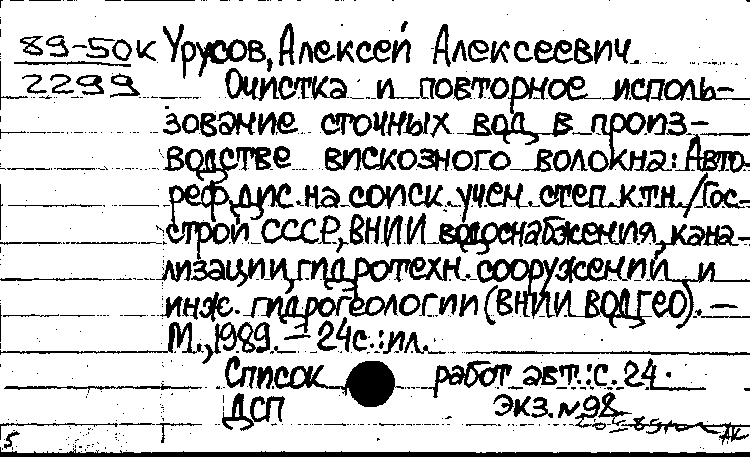 89-50к Урусов, Алексей Алексеевич.
2299 Очистка и повторное исполь-
зование сточных вод в произ-
водстве вискозного волокна: Авто-
реф. дис. на соиск. учен. степ. к.т.н. / Гос-
строй СССР, ВНИИ водоснабжения, кана-
лизации, гидротехн. сооружений и
инж. гидрогеологии (ВНИИ ВОДГЕО). –
М., 1989. – 24с.: ил.
Список работ авт.: с. 24.
ДСП ЭКЗ. N98
5 АК